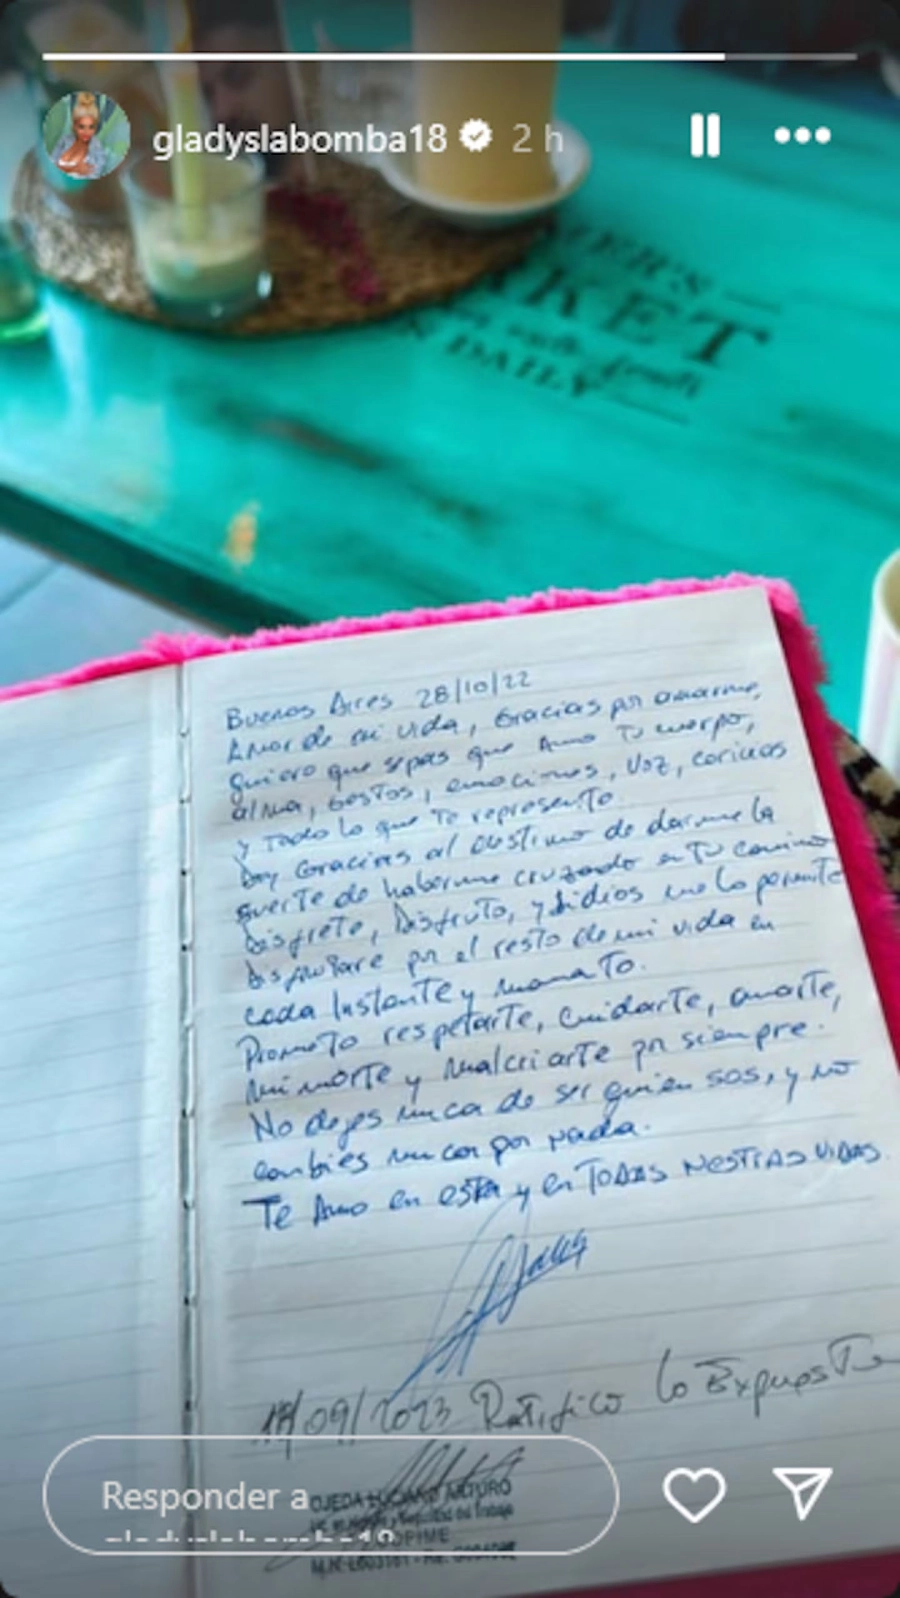 gladyslabomba18 2 h
KET
DAILY
Buenos Aires 28/10/22
Amor de mi vida, Gracias por amarme,
quiero que sepas que Amo Tu cuerpo,
alma, Gestos, emociones, Voz, caricias
y Todo lo que Te represento.
Doy Gracias al destino de darme la
suerte de haberme cruzado en Tu camino
Disfrete, Disfruto, y si dios me lo permite
disfrutare por el resto de mi vida en
cada Instante y momento.
Prometo respetarte, Cuidarte, amarte,
mimarte y malcriarte por siempre.
No dejes nunca de ser quien sos, y no
cambies nunca por nada.
Te Amo en esta y en TODAS NESTRAS VIDAS.
/09/2023 Ratifico lo Expuesto
Responder a
gladyslabomba18
OJEDA LUCIANO ARTURO
COPIME